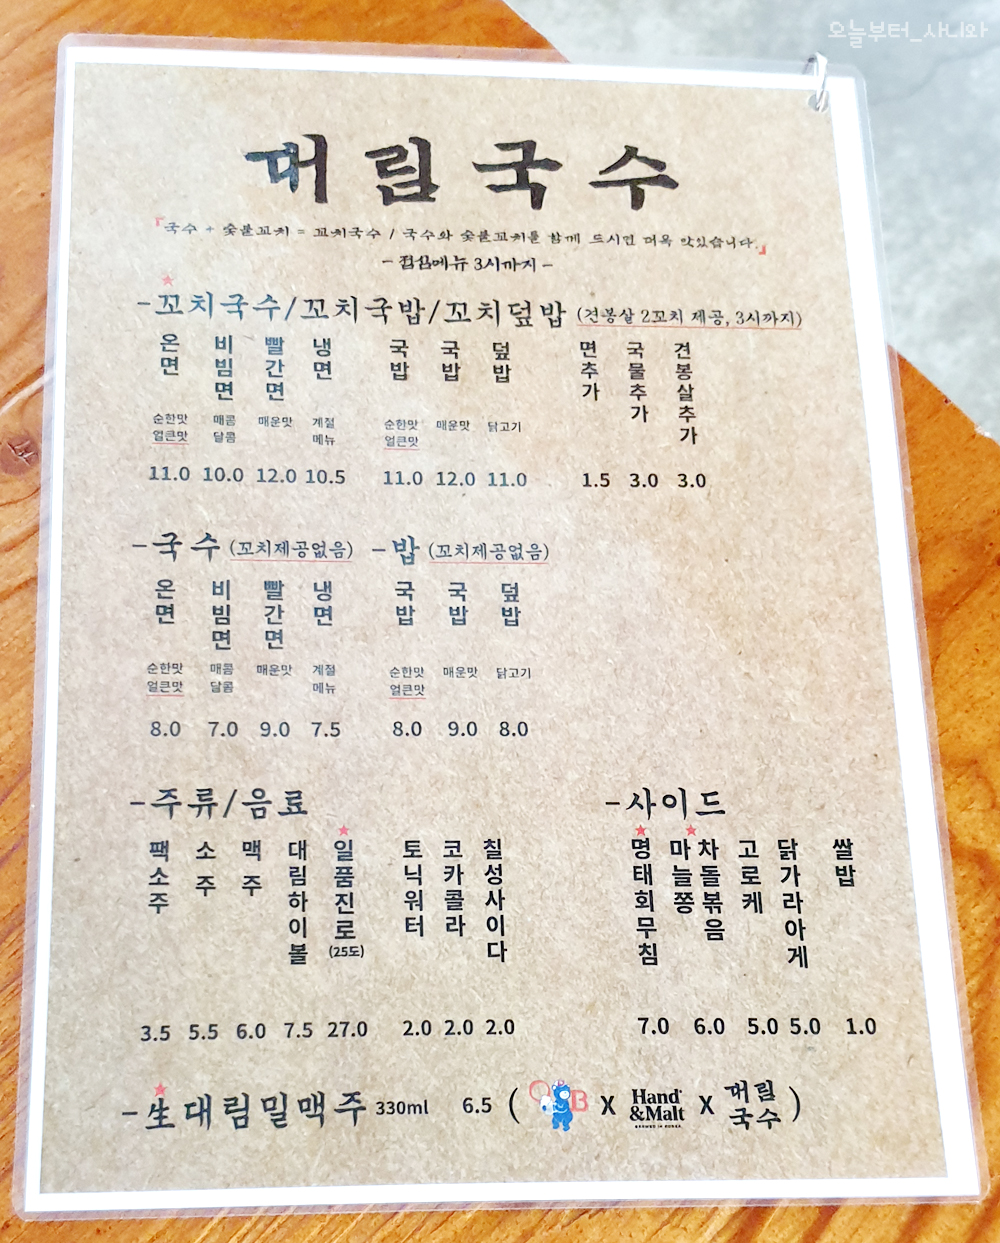 오늘부터_사니와
대림국수
『국수 + 숯불꼬치 = 꼬치국수 / 국수와 숯불꼬치를 함께 드시면 더욱 맛있습니다.』
- 점심메뉴 3시까지 -
- 꼬치국수/꼬치국밥/꼬치덮밥 (견봉살 2꼬치 제공, 3시까지)
온면 비빔면 빨간면 냉면 국밥 국밥 덮밥 면추가 국물추가 견봉살추가
순한맛 매콤 매운맛 계절 순한맛 매운맛 닭고기
얼큰맛 달콤 메뉴 얼큰맛
11.0 10.0 12.0 10.5 11.0 12.0 11.0 1.5 3.0 3.0
- 국수 (꼬치제공없음) - 밥 (꼬치제공없음)
온면 비빔면 빨간면 냉면 국밥 국밥 덮밥
순한맛 매콤 매운맛 계절 순한맛 매운맛 닭고기
얼큰맛 달콤 메뉴 얼큰맛
8.0 7.0 9.0 7.5 8.0 9.0 8.0
- 주류/음료 - 사이드
팩소주 소주 맥주 대림하이볼 일품진로 (25도) 토닉워터 코카콜라 칠성사이다 명태회무침 마늘쫑 차돌볶음 고로케 닭가라아게 쌀밥
3.5 5.5 6.0 7.5 27.0 2.0 2.0 2.0 7.0 6.0 5.0 5.0 1.0
- 生대림밀맥주 330ml 6.5 ( OB X Hand &Malt BREWED IN KOREA X 대림국수 )